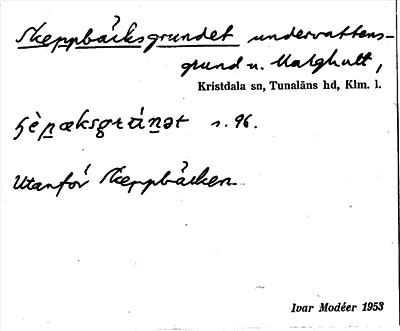 Skeppbåksgrundet undervattens-
grund u. Malghult,
Kristdala sn, Tunaläns hd, Klm. l.
s. 96.
Utanför Skeppbåken
Ivar Modéer 1953